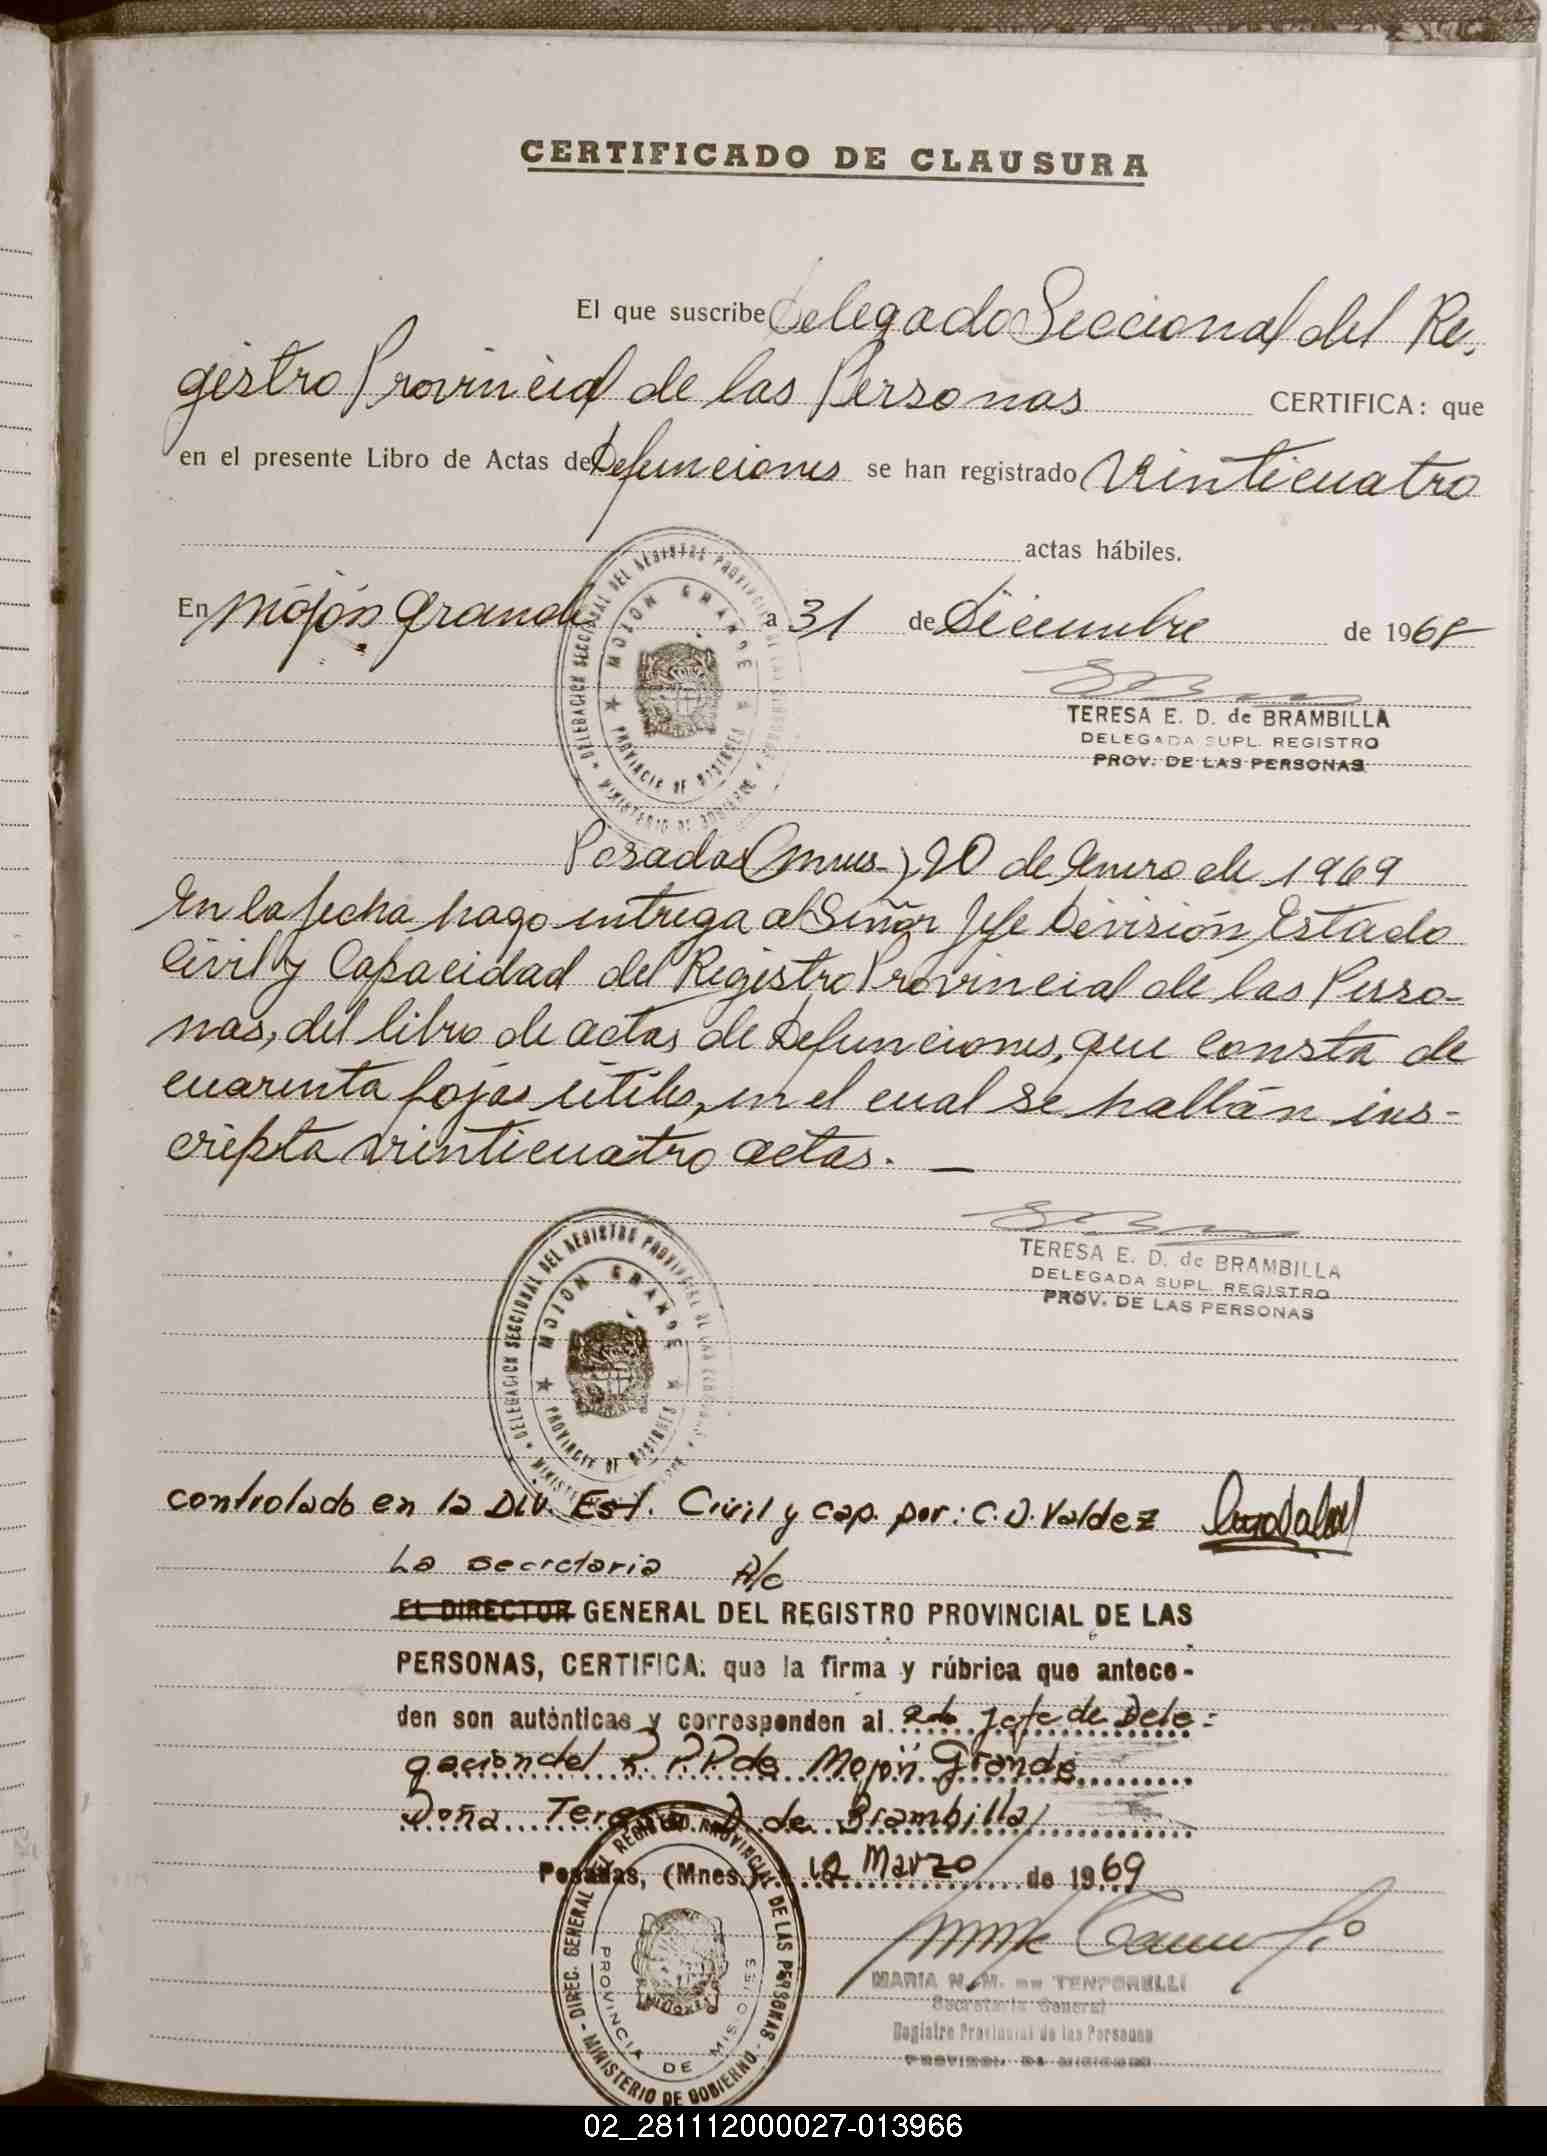 CERTIFICADO DE CLAUSURA
El que suscribe Delegado Seccional del Re-
gistro Provincial de las Personas CERTIFICA: que
en el presente Libro de Actas de Defunciones se han registrado Veinticuatro
actas hábiles.
En Mojón Grande a 31 de Diciembre de 1968
TERESA E. D. de BRAMBILLA
DELEGADA SUPL. REGISTRO
PROV. DE LAS PERSONAS
DELEGACION SECCIONAL DEL REGISTRO PROVINCIAL DE LAS PERSONAS
MOJON GRANDE
PROVINCIA DE MISIONES
MINISTERIO DE GOBIERNO
Posadas (Mnes.) 20 de Enero de 1969
En la fecha hago entrega al Señor Jefe División Estado
Civil y Capacidad del Registro Provincial de las Perso-
nas, del libro de actas de Defunciones, que consta de
cuarenta fojas útiles, en el cual se hallán ins-
cripta veinticuatro actas. —
TERESA E. D. de BRAMBILLA
DELEGADA SUPL. REGISTRO
PROV. DE LAS PERSONAS
DELEGACION SECCIONAL DEL REGISTRO PROVINCIAL DE LAS PERSONAS
MOJON GRANDE
PROVINCIA DE MISIONES
controlado en la Div. Est. Civil y Cap. por: C.D. Valdez
La secretaria A/C
EL DIRECTOR GENERAL DEL REGISTRO PROVINCIAL DE LAS
PERSONAS, CERTIFICA: que la firma y rúbrica que antece-
den son auténticas y corresponden al 2do Jefe de Dele-
gacion del R.P.P. de Mojón Grande
Doña Teresa D. de Brambilla
Posadas, (Mnes.) 12 Marzo de 1969
MARIA N. M. de TENTORELLI
Secretaria General
Registro Provincial de las Personas
PROVINCIA DE MISIONES
DIREC. GENERAL DEL REGISTRO PROVINCIAL DE LAS PERSONAS
PROVINCIA DE MISIONES
MINISTERIO DE GOBIERNO
02_281112000027-013966